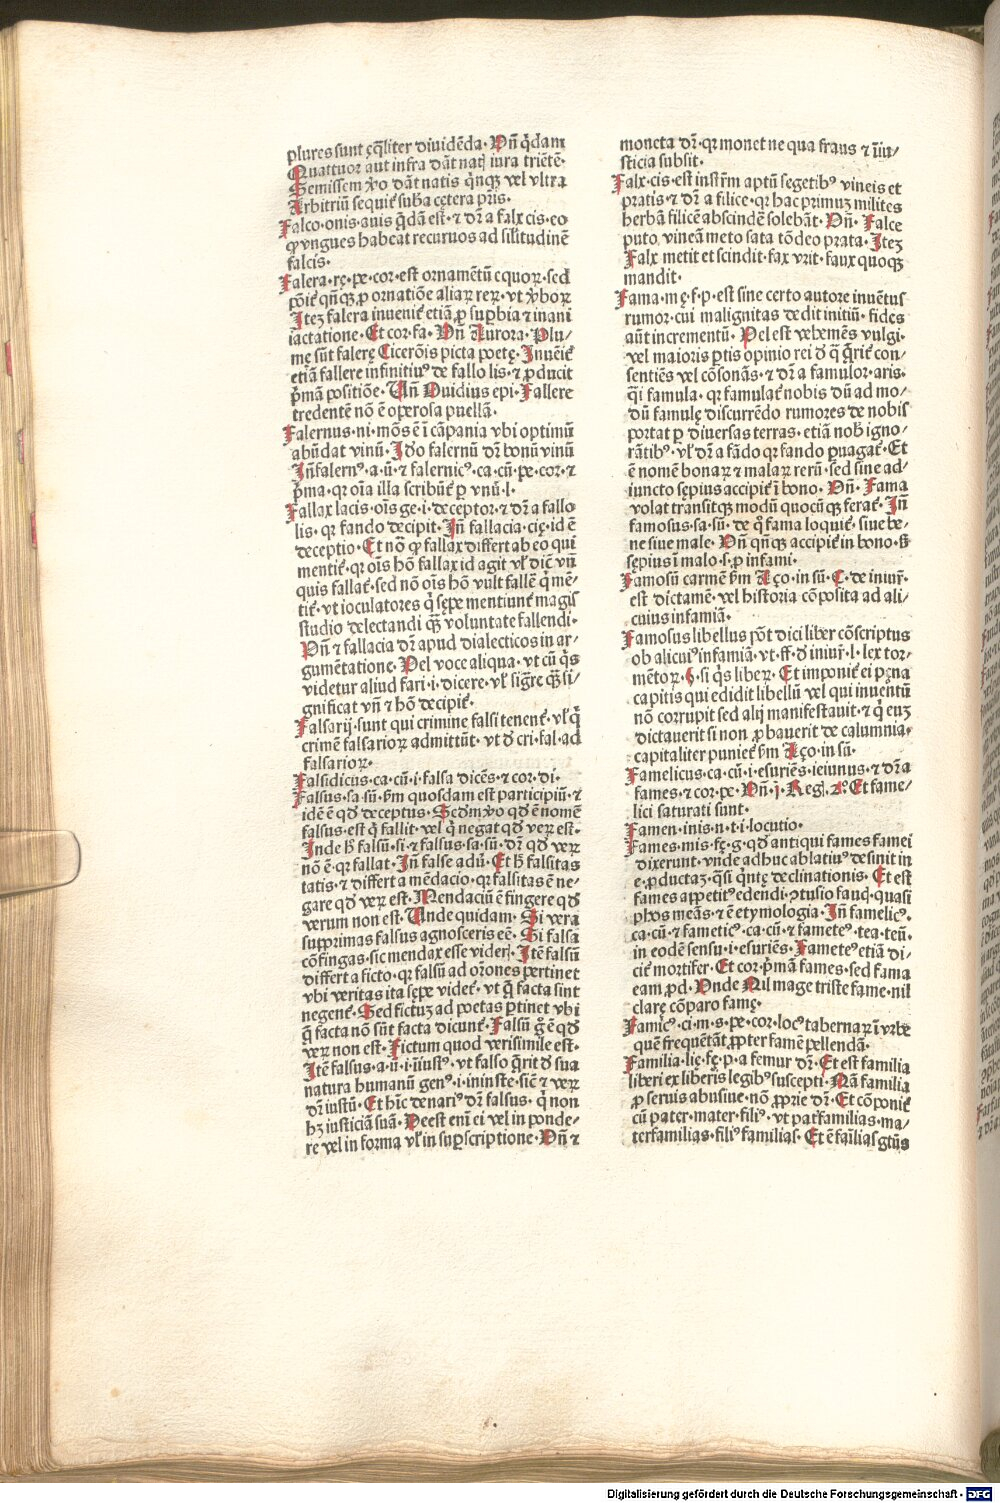 plures sunt ęq̄liter diuidēda. Vn̄ q̇dam
Quattuor aut infra dāt natꝭ iura triēte.
Semissem ꝟo dāt natis q̇nqꝫ vel vltra
Arbitriū sequiť sub̄a cętera pr̄is.
Falco. onis. auis q̄dā est. ⁊ dr̄ a falx cis. eo
ꝙ vngues habeat recuruos ad sil̄itudinē
falcis.
Falera. rę. pe. cor. est ornamētū equoꝝ. sed
pōiť qn̄qꝫ ꝓ ornatiōe aliaꝝ reꝝ. vt ꝟboꝝ
Itez falera inueniť etiā ꝓ suꝑbia ⁊ inani
iactatione. Et cor. fa. Vn̄ Aurora. Plu/
mę sūt falerę Cicerōis picta poetę. Inueniť
etiā fallere infinitiuꝰ de fallo lis. ⁊ ꝓducit
p̄mā positiōe. Vn̄ Ouidius epi. Fallere
credentē nō ē oꝑosa puellā.
Falernus. ni. mōs ē ī cāpania vbi optimū
abūdat vinū. Ido falernū dr̄ bonū vinū
Jn̄ falernꝰ. a. ū. ⁊ falernicꝰ. ca. cū. pe. cor. ⁊
p̄ma. qꝛ oīa illa scribūť ꝑ vnū. l.
Fallax lacis. oīs ge. i. deceptor. ⁊ dr̄ a fallo
lis. qꝛ fando decipit. Jn̄ fallacia. cię. id ē
deceptio. Et nō ꝙ fallax differt ab eo qui
mentiť. qꝛ oīs hō fallax id agit vt̓ dicť vn̄
quis fallať. sed nō oīs hō vult fallē q̇ mē/
tiť. vt ioculatores q̇ sępe mentiunť magis
studio delectandi qꝫ voluntate fallendi.
Vn̄ ⁊ fallacia dr̄ apud dialecticos in ar/
gumētatione. Vel voce aliqua. vt cū q̇s
videtur aliud fari. i. dicere. vl̓ sigr̄e qꝫ si/
gnificat vn̄ ⁊ hō decipiť.
Falsarij. sunt qui crimine falsi tenenť. vl̓ q̇
crimē falsarioꝝ admittūt. vt ď cri. fal. ad
falsarioꝝ.
Falsidicus. ca. cū. i. falsa dicēs. ⁊ cor. di.
Falsus. sa. sū. ẜm quosdam est participiū. ⁊
idē ē qď deceptus. Scďm ꝟo qď ē nomē
falsus. est q̇ fallit. vel q̇ negat qď veꝝ est.
Inde h̄ falsū. si. ⁊ falsus. sa. sū. dr̄ qď veꝝ
nō ē. qꝛ fallat. Jn̄ false adū. Et h̄ falsitas
tatis. ⁊ differt a mēdacio. qꝛ falsitas ē ne/
gare qď veꝝ est. Mendaciū ē fingere qď
verum non est. Unde quidam. Si vera
supprimas falsus agnosceris eē. Si falsa
cōfingas. sic mendax esse videꝝ. Itē falsū
differt a ficto. qꝛ falsū ad or̄ones ꝑtinet
vbi veritas ita sępe videť. vt q̄ facta sint
negenť. Sed fictuz ad poetas ꝑtinet vbi
q̄ facta nō sūt facta dicunť. Falsū ḡ ē qď
veꝝ non est. Fictum quod verisimile est.
Itē falsus. a. ū. i. iiustꝰ. vt falso q̄rit ď sua
natura humanū genꝰ. i. iniuste. sic̄ ⁊ veꝝ
dr̄ iustū. Et hīc denariꝰ dr̄ falsus. q̇ non
hꝫ iusticiā suā. Deest eni ei vel in ponde/
re vel in forma vl̓ in suꝑscriptione. Vn̄ ⁊
moneta dr̄. qꝛ monet ne qua fraus ⁊ iiu/
sticia subsit.
Falx. cis. est instr̄m aptū segetibꝰ vineis et
pratis. ⁊ dr̄ a filice. qꝛ hac primuz milites
herbā filicē abscindē solebāt. Vn̄. Falce
puto vineā meto sata tōdeo prata. Itez
Falx metit et scindit. fax vrit. faux quoqꝫ
mandit.
Fama. mę. f. p. est sine certo autore inuētus
rumor. cui malignitas dedit initiū. fides
aūt incrementū. Vel est vehemēs vulgi.
vel maioris ꝑtis opinio rei ď q̄ q̄riť con/
sentiēs vel cōsonās. ⁊ dr̄ a famulor. aris.
q̄i famula. qꝛ famulať nobis dū ad mo/
dū famulę discurrēdo rumores de nobis
portat ꝑ diuersas terras. etiā nob̄ igno/
rātibꝰ. vl̓ dr̄ a fādo qꝛ fando ꝑuagať. Et
ē nomē bonaꝝ ⁊ malaꝝ rerū. sed sine ad/
iuncto sępius accipiť ī bono. Vn̄. Fama
volat transitqꝫ modū quocūqꝫ ferať. Jn̄
famosus. sa. sū. de q̇ fama loquiť. siue be/
ne siue male. Vn̄ qn̄qꝫ accipiť in bono. ß
sępius ī malo. s. ꝓ infami.
Famosū carmē ẜm Aço. in sū. C. de iniur̄.
est dictamē. vel historia cōposita ad ali/
cuius infamiā.
Famosus libellus pōt dici liber cōscriptus
ob alicuiꝰ infamiā. vt. ff. ď iniur̄. l. lex cor/
mētoꝝ. §. si q̇s libeꝝ. Et imponiť ei pęna
capitis qui edidit libellū vel qui inuentū
nō corrupit sed alij manifestauit. ⁊ q̇ euz
dictauerit si non ꝓbauerit de calumnia.
capitaliter punieť ẜm Aço. in sū.
Famelicus. ca. cū. i. esuriēs. ieiunus. ⁊ dr̄ a
fames. ⁊ cor. pe. Vn̄. j. Regꝭ. 2°. Et fame/
lici saturati sunt.
Famen. inis. n. t. i. locutio.
Fames. mis. fę. g. qď antiqui fames famei
dixerunt. vnde adhuc ablatiuꝰ desinit in
e. ꝓductaz. q̄si q̇ntę declinationis. Et est
fames appetitꝰ edendi. ꝯtusio fauꝯ. quasi
phos meās. ⁊ ē etymologia. Jn̄ famelicꝰ.
ca. cū. ⁊ fameticꝰ. ca. cū. ⁊ fametꝰ. tea. teū.
in eodē sensu. i. esuriēs. Fametꝰ etiā di/
ciť mortifer. Et cor. p̄mā fames. sed fama
eam ꝓd. Vnde Nil mage triste fame. nil
clarę cōparo famę.
Famicꝰ. ci. m. s. pe. cor. locꝰ tabernaꝝ ī vrbe
quē frequētāt ꝓpter famē pellendā.
Familia. lię. fę. p. a femur dr̄. Et est familia
liberi ex liberis legibꝰ suscepti. Nā familia
ꝓ seruis abusiue. nō ꝓprie dr̄. Et cōponiť
cū pater. mater. filiꝰ. vt patfamilias. ma/
terfamilias. filiꝰ familias. Et ē fāilias gtūs
Digitalisierung gefördert durch die Deutsche Forschungsgemeinschaft - DFG